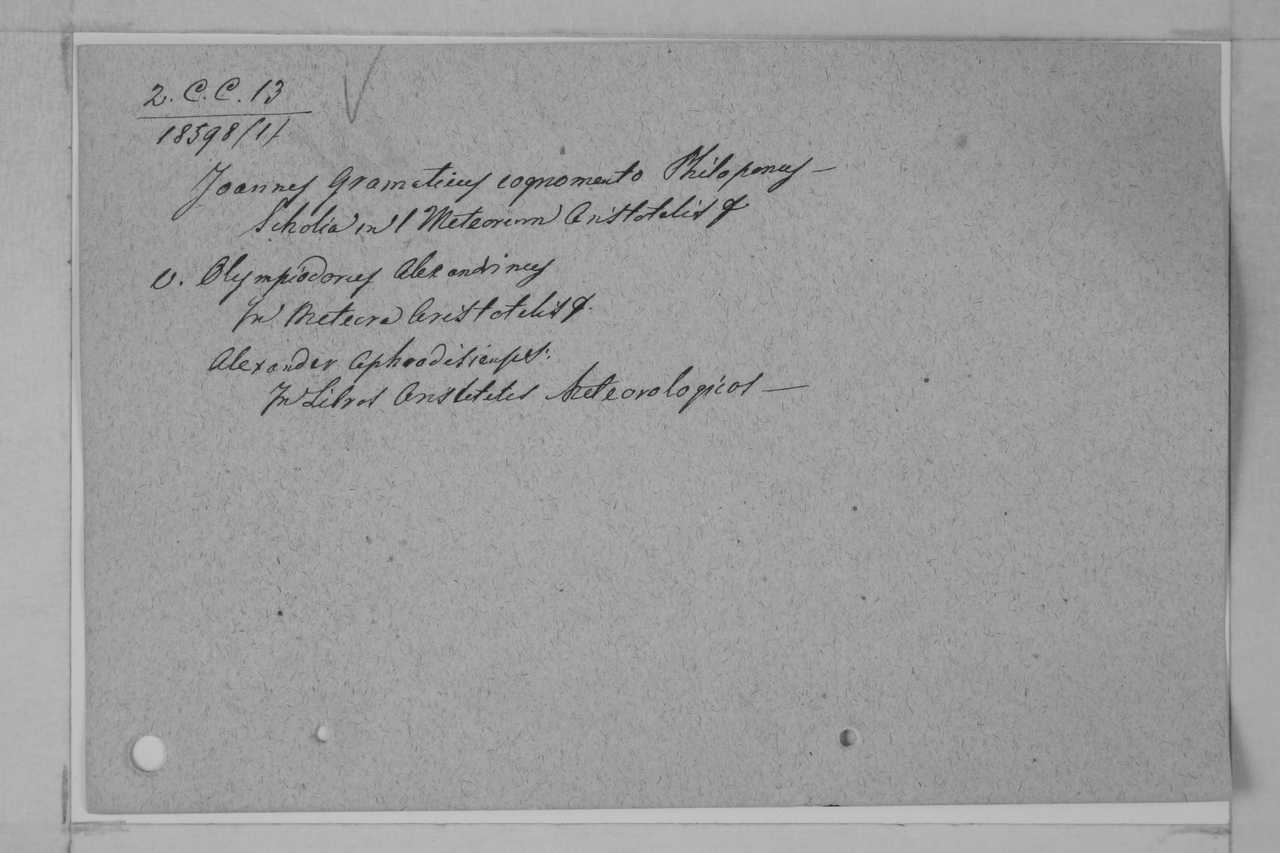 2. C. C. 13
18598/1/
Joannes Gramaticus cognomento Philoponus —
Scholia in 1 Meteorum Aristotelis
v. Olympiodorus Alexandrinus
In Meteora Aristotelis
Alexander Aphrodisiensis:
In Libros Aristotelis Meteorologicos —